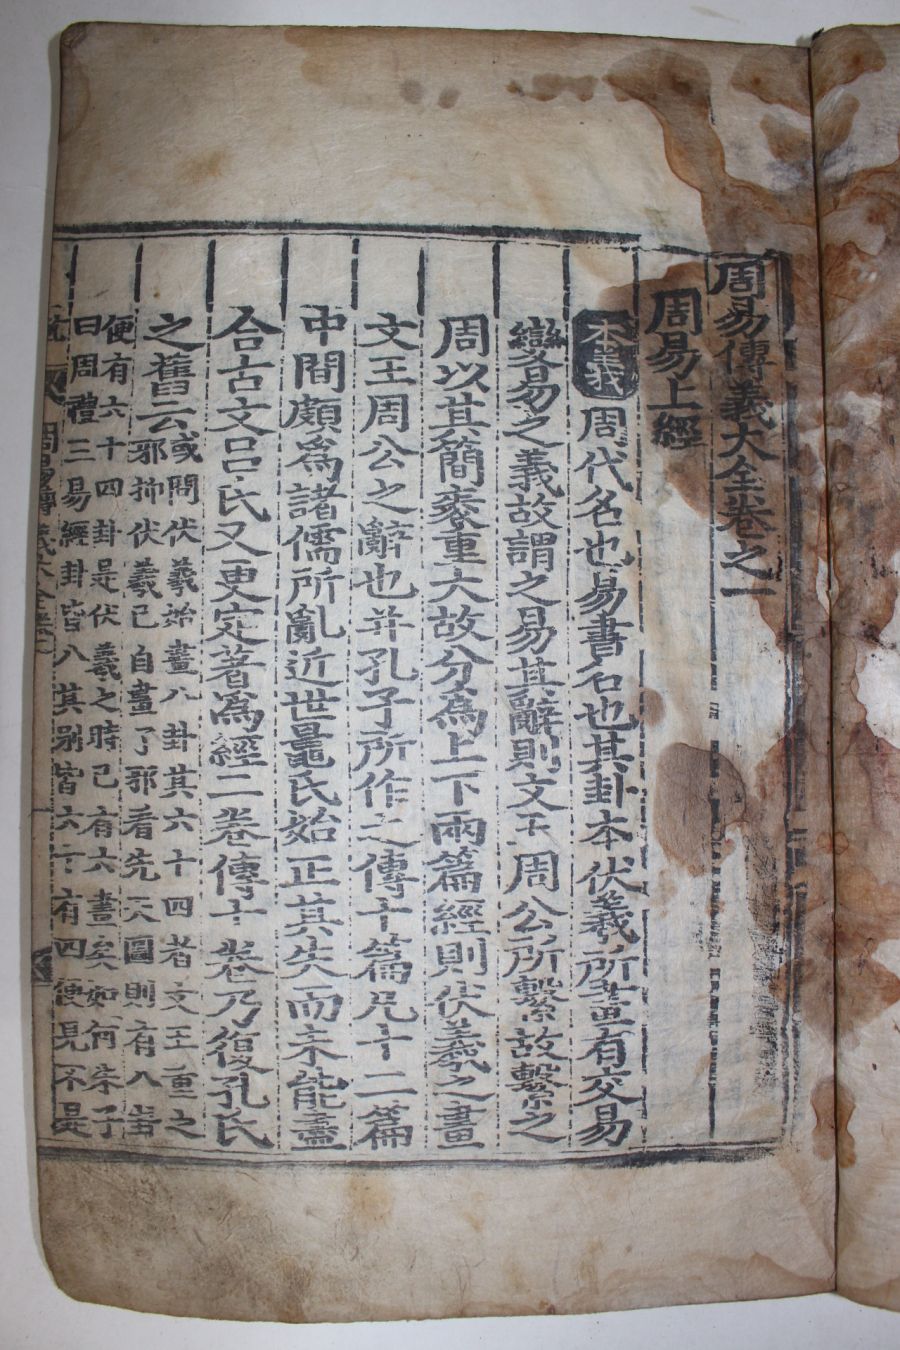 周易傳義大全卷之一
周易上經
本義周代名也易書名也其卦本伏羲所畫有交易
變易之義故謂之易其辭則文王周公所繫故繫之
周以其簡袠重大故分爲上下兩篇經則伏羲之畫
文王周公之辭也并孔子所作之傳十篇凡十二篇
中間頗爲諸儒所亂近世晁氏始正其失而未能盡
合古文呂氏又更定著爲經二卷傳十卷乃復孔氏
之舊云
或問伏羲始畫八卦其六十四者文王重之
邪抑伏羲已自畫了邪看先天圖則有八
便有六十四卦是伏羲之時已有六畫矣如何朱子
曰周禮三易經卦皆八其別皆六十有四便見不是